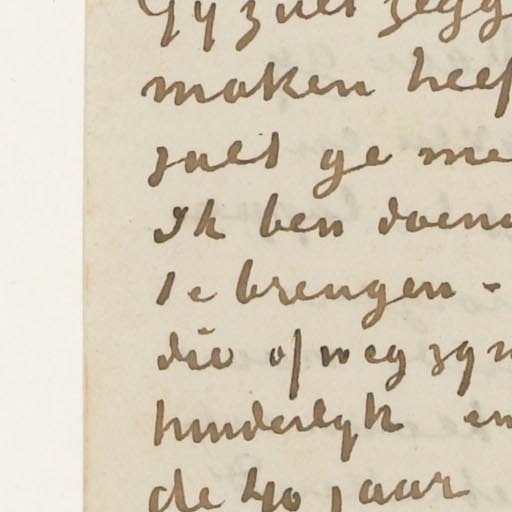 Gij zult zegg
maken heef
zult ge me
Ik ben doen
te brengen -
die of weg zyn
hinderlyk en
de 40 jaar